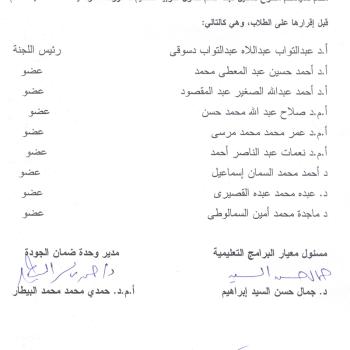 قبل إقرارها على الطلاب، وهي كالتالي:
أ.د عبدالتواب عبداللاه عبدالتواب دسوقى رئيس اللجنة
أ.د أحمد حسين عبد المعطى محمد عضو
أ.د أحمد عبدالله الصغير عبد المقصود عضو
أ.م.د صلاح عبد الله محمد حسن عضو
أ.م.د عمر محمد محمد مرسى عضو
أ.م.د نعمات عبد الناصر أحمد عضو
د أحمد محمد السمان إسماعيل عضو
د. عبده محمد عبده القصيرى عضو
د ماجدة محمد أمين السمالوطى عضو
مسئول معيار البرامج التعليمية مدير وحدة ضمان الجودة
جمال حسن السيد
د. جمال حسن السيد إبراهيم أ.م.د. حمدي محمد محمد البيطار